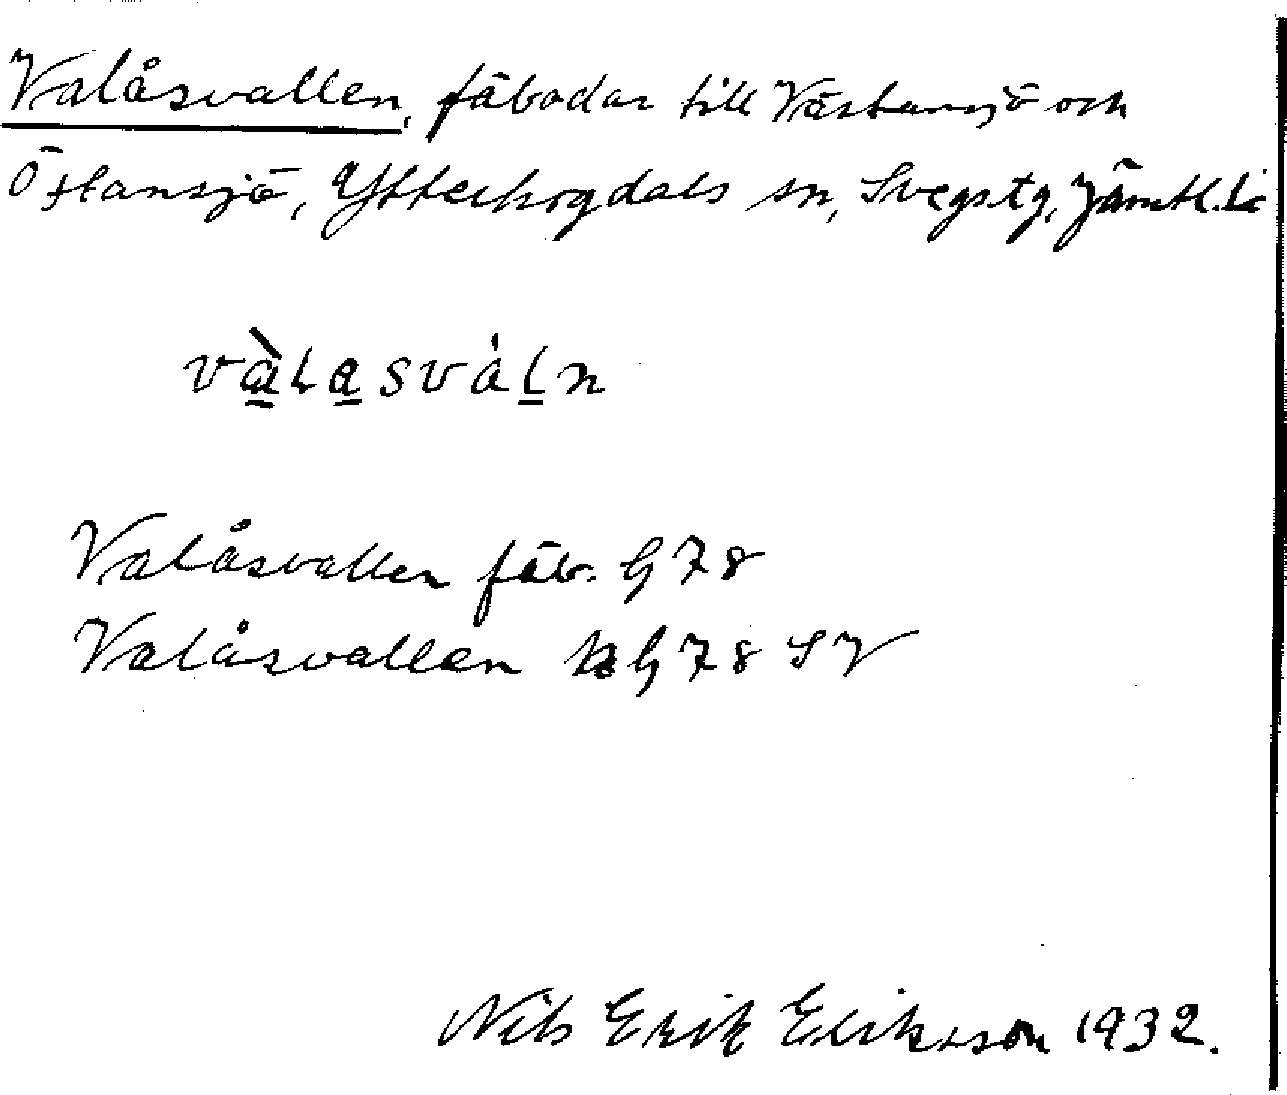 Valåsvallen, fäbodar till Västansjö och
Östansjö, Ytterhogdals sn, Svegs tg, Jämtl. l.
vàlasvàln
Valåsvallen fäb. G 78
Valåsvallen G 78 SV
Nils Erik Eriksson 1932.